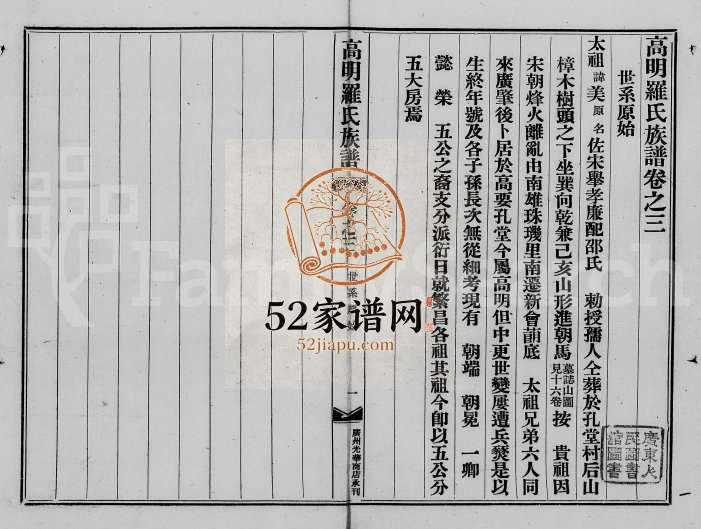 高明羅氏族譜卷之三
世系原始
太祖諱美原名佐宋舉孝廉配邵氏 勅授孺人仝葬於孔堂村后山
樟木樹頭之下坐巽向乾兼己亥山形進朝馬墓誌山圖見十六卷按 貴祖因
宋朝烽火離亂由南雄珠璣里南遷新會蓢底 太祖兄弟六人同
來廣肇後卜居於高要孔堂今屬高明但中更世變屢遭兵燹是以
生終年號及各子孫長次無從細考現有 朝端 朝冕 一卿
懿 榮 五公之裔支分派衍日就繁昌各祖其祖今卽以五公分
五大房焉
高明羅氏族譜
世系
一
廣州光華商店承刊
廣東人
民圖書
館圖書
52家谱网
52jiapu.com